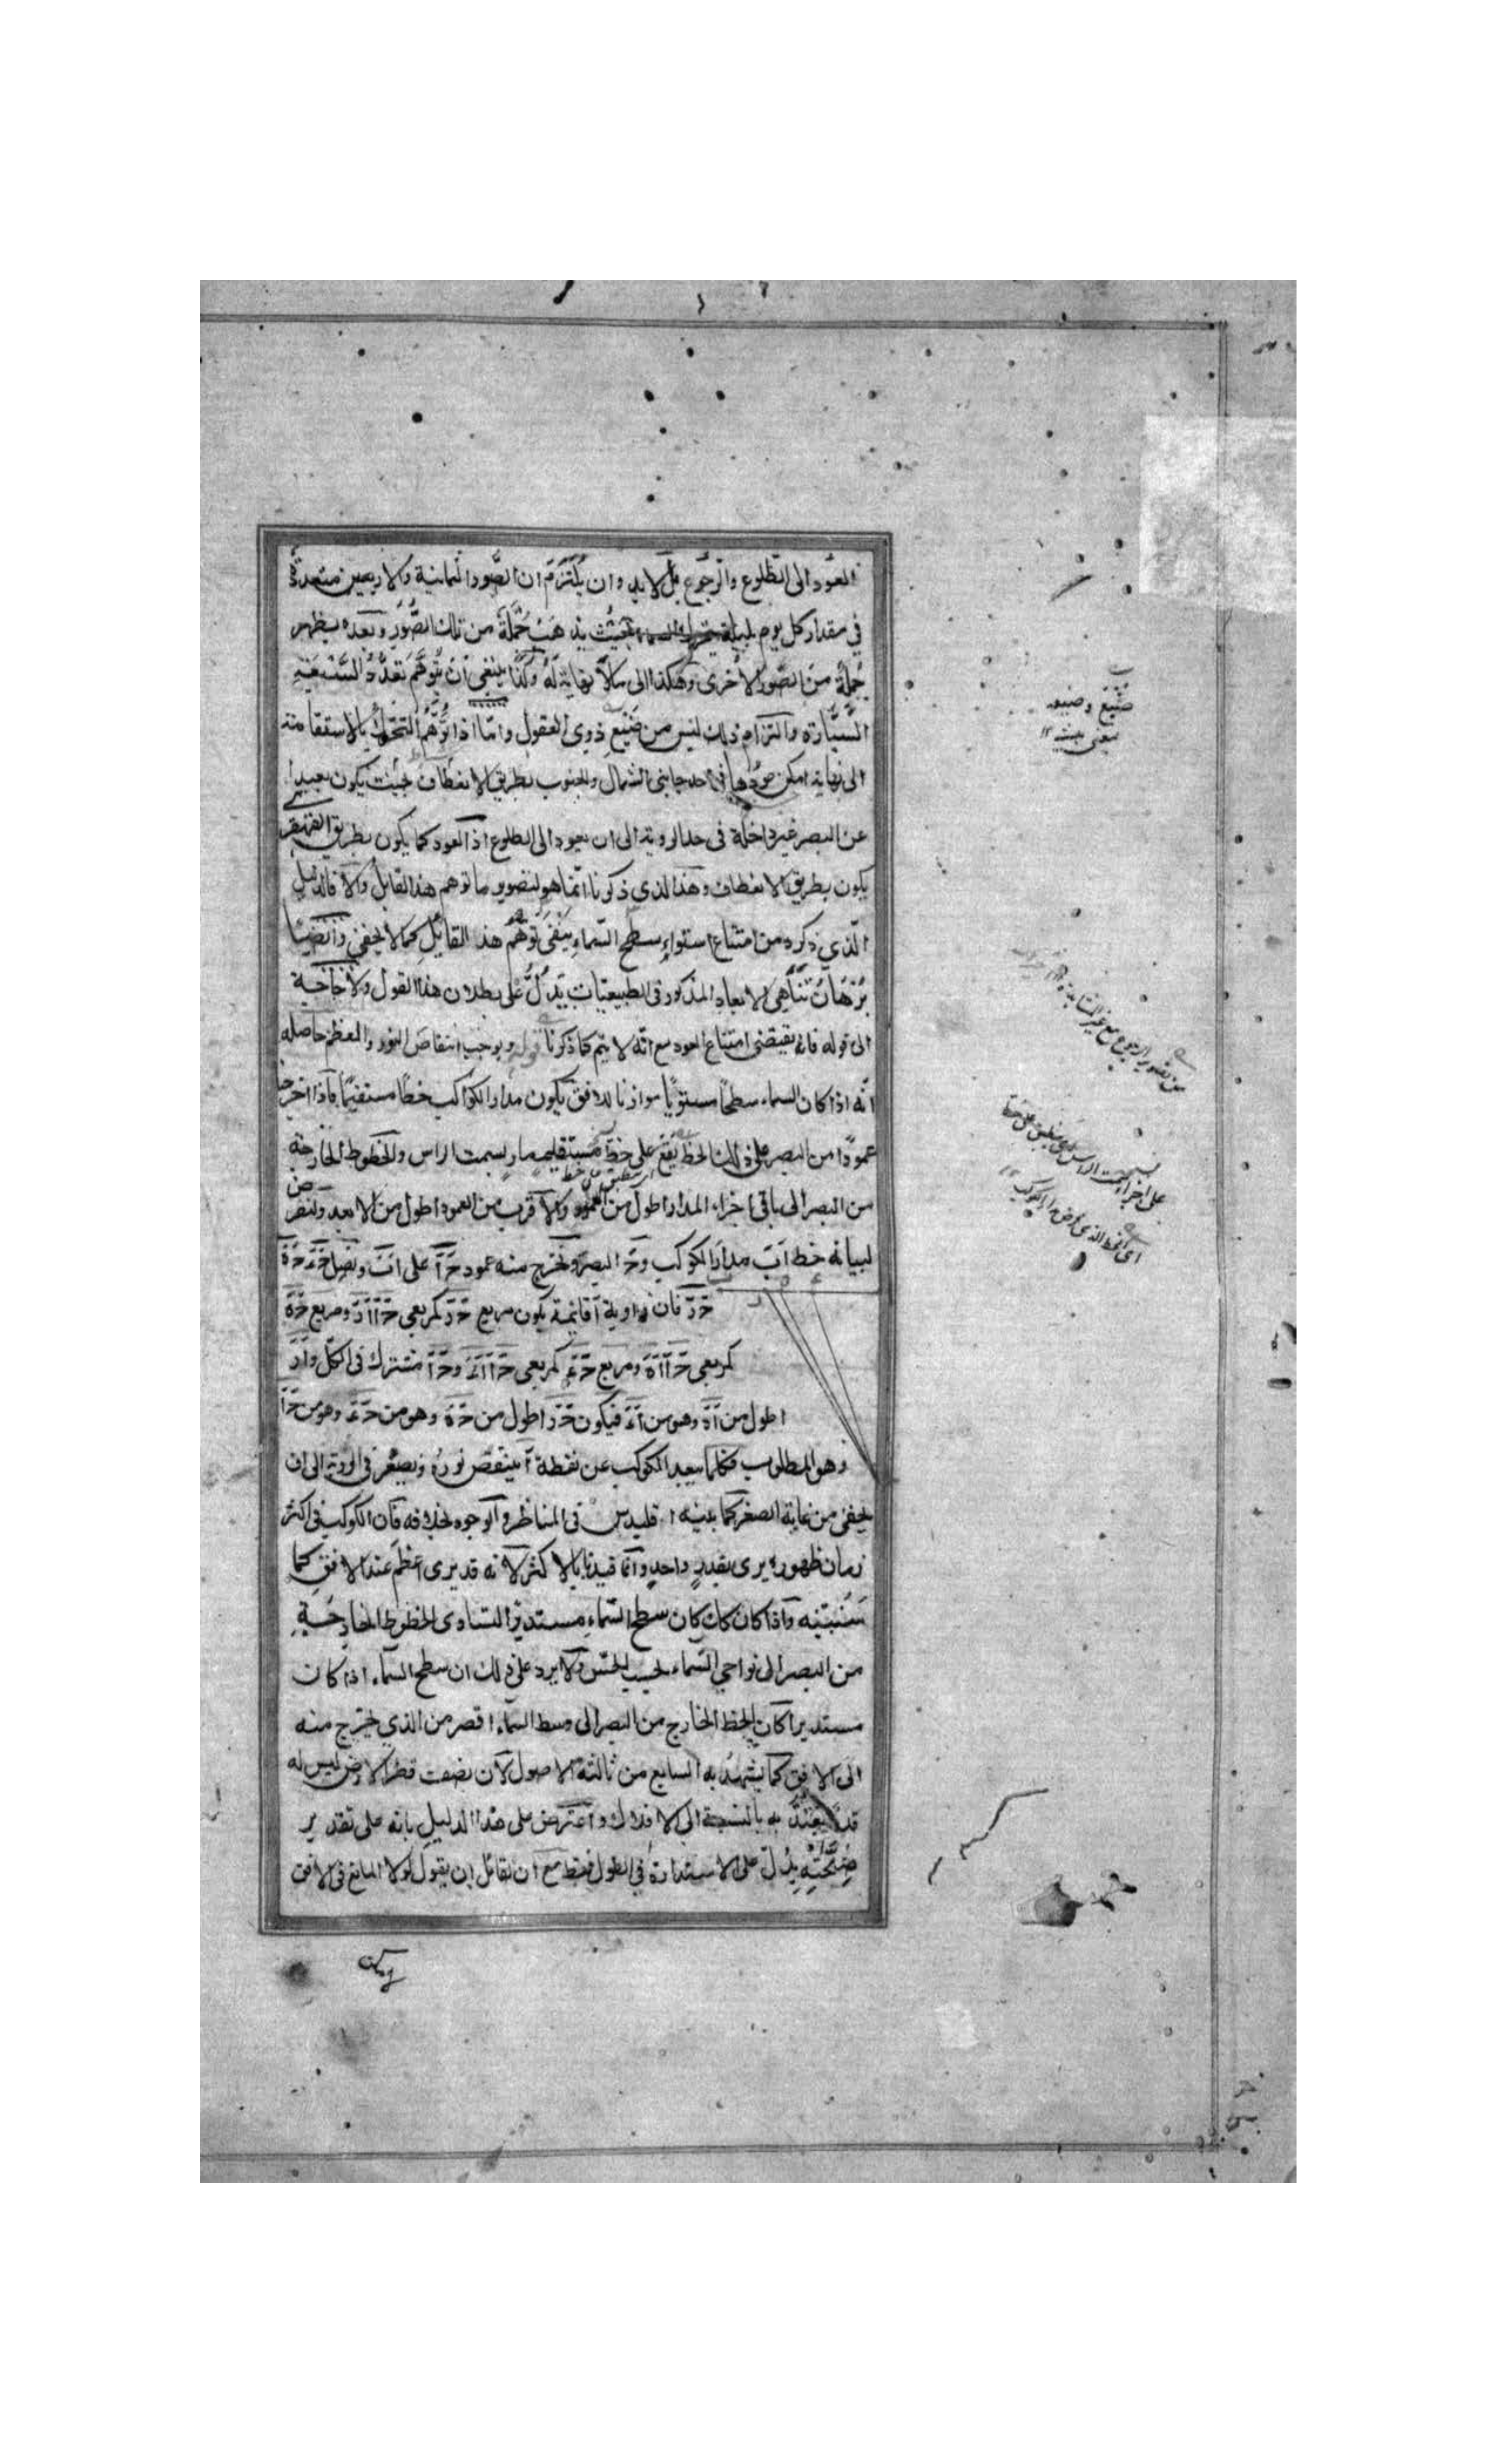 العود الى الطلوع والرجوع بل لا بد وان يلتزم ان الصور الثمانية والاربعين متعددة
في مقدار كل يوم بليلة بحيث يذهب جملة من تلك الصور وبعده يظهر
جملة من الصور الاخرى وهكذا الى ما لا نهاية له وكذا ينبغي ان يتوهم تعدد السبعة
السيارة والتزام ذلك ليس من صنيع ذوي العقول واما اذا توهم التحرك بالاستقامة
الى نهاية امكن عودها في احد جانبي الشمال والجنوب بطريق الانعطاف بحيث يكون بعيدا
عن البصر غير داخلة في حد الروية الى ان يعود الى الطلوع اذ العود كما يكون بطريق القهقرى
يكون بطريق الانعطاف وهذا الذي ذكرنا انما هو لتصوير ما توهم هذا القايل والا فالدليل
الذي ذكره من امتناع استواء سطح السماء ينفي توهم هذا القايل كما لا يخفى وايضا
برهان تناهي الابعاد المذكور في الطبيعيات يدل على بطلان هذا القول ولا حاجة
الى قوله فانه يقتضي امتناع العود مع انه لا يتم كما ذكرنا قوله ويوجب انتقاص النور والعظم حاصله
انه اذا كان السماء سطحا مستويا موازيا للافق يكون مدار الكواكب خطا مستقيما فاذا اخرجنا
عمودا من البصر على ذلك الخط يقع على خط مستقيم مار بسمت الراس والخطوط الخارجة
من البصر الى باقي اجزاء المدار اطول من العمود والاقرب من العمود اطول من الابعد ولنفرض
لبيانه خط اب مدار الكوكب وح البصر ونخرج منه عمود ح ا على اب ونصل ح ء ح ه
ح ر فان زاوية ا قايمة يكون مربع ح ر كمربعي ح ا ا ر ومربع ح ه
كمربعي ح ا ا ه ومربع ح ء كمربعي ح ا ا ء وح ا مشترك في الكل وا ر
اطول من ا ه وهو من ا ء فيكون ح ر اطول من ح ه وهو من ح ء وهو من ح ا
وهو المطلوب فكلما يبعد الكوكب عن نقطة ا ينتقص نوره ويصغر في الروية الى ان
يخفى من غاية الصغر كما بينه اقليدس في المناظر والوجود بخلافه فان الكوكب في اكثر
زمان ظهوره يرى بقدر واحد وانما قيدنا بالاكثر لانه قد يرى اعظم عند الافق كما
سنبينه واذا كان كك كان سطح السماء مستديرا لتساوى الخطوط الخارجة
من البصر الى نواحي السماء بحسب الحس ولا يرد على ذلك ان سطح السماء اذا كان
مستديرا كان الخط الخارج من البصر الى وسط السماء اقصر من الذي يخرج منه
الى الافق كما يشهد به السابع من ثالثة الاصول لان نصف قطر الارض ليس له
قدر يعتد به بالنسبة الى الافلاك واعترض على هذا الدليل بانه على تقدير
صحته يدل على الاستدارة في الطول فقط مع ان لقائل ان يقول لولا المانع في الافق
لامكن
صنيع وصنيعه
بمعنى